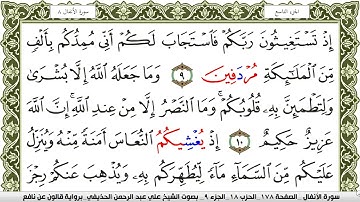 الجزء التاسع
سورة الأنفال ٨
إِذْ تَسْتَغِيثُونَ رَبَّكُمْ فَاسْتَجَابَ لَكُمُ أَنِّي مُمِدُّكُم بِأَلْفٍ
مِّنَ الْمَلَٰٓئِكَةِ مُرْدَفِينَ ٩ وَمَا جَعَلَهُ اللَّهُ إِلَّا بُشْرَىٰ
وَلِتَطْمَئِنَّ بِهِۦ قُلُوبُكُمْ وَمَا النَّصْرُ إِلَّا مِنْ عِندِ اللَّهِ إِنَّ اللَّهَ
عَزِيزٌ حَكِيمٌ ١٠ إِذْ يُغْشِيكُمُ النُّعَاسَ أَمَنَةً مِّنْهُ وَيُنَزِّلُ
عَلَيْكُم مِّنَ السَّمَآءِ مَآءً لِّيُطَهِّرَكُم بِهِۦ وَيُذْهِبَ عَنكُمْ رِجْزَ
سورة الأنفال - الصفحة ١٧٨ الحزب ١٨ الجزء ٩ - بصوت الشيخ علي عبد الرحمن الحذيفي - برواية قالون عن نافع